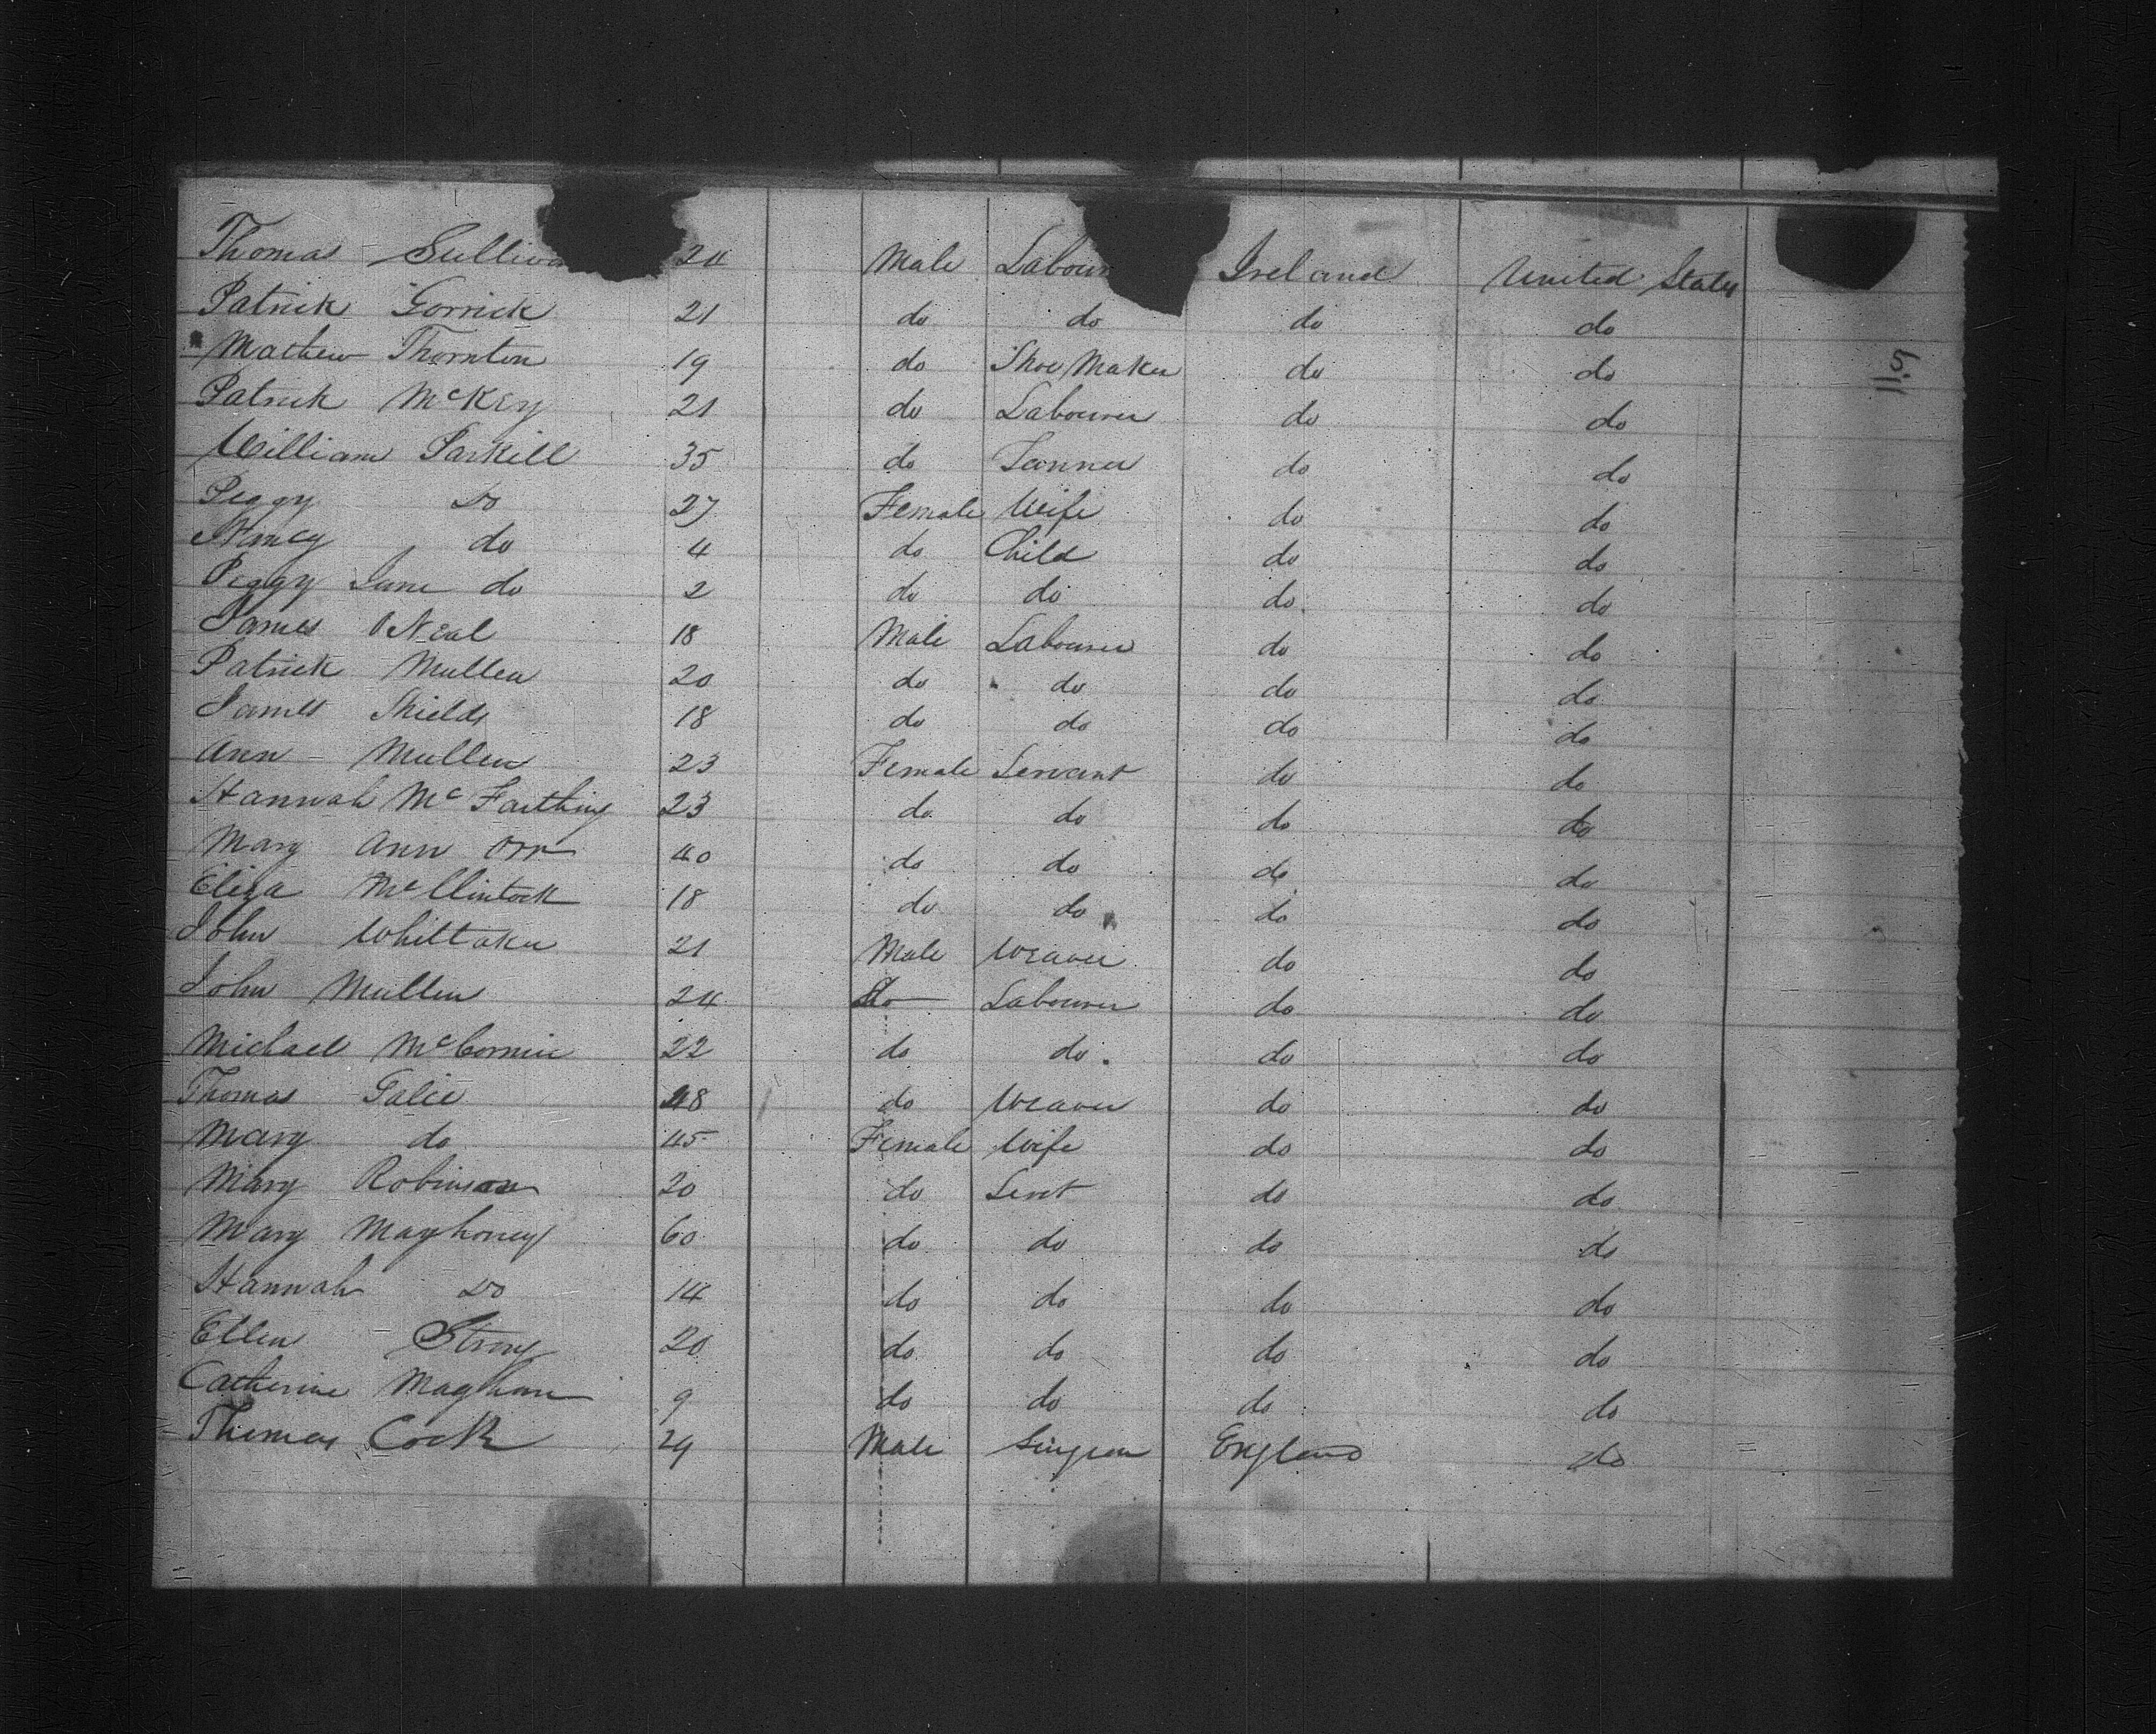 Thomas Sulliva 24 Male Labour Ireland United States
Patrick Gorrick 21 do do do do
Mathew Thornton 19 do Shoe Maker do do
Patrick McKey 21 do Labourer do do
William Sarkill 35 do Tanner do do
Peggy Do 27 Female Wife do do
Nancy do 4 do Child do do
Peggy Jane do 2 do do do do
James ONeal 18 Male Labourer do do
Patrick Mullen 20 do do do do
James Shields 18 do do do do
Ann Mullen 23 Female Servant do do
Hannah McFarthing 23 do do do do
Mary Ann Orr 40 do do do do
Eliza McClintock 18 do do do do
John Whittaker 21 Male Weaver do do
John Mullen 24 Do Labourer do do
Michael McCormic 22 do do do do
Thomas Galie 48 do Weaver do do
Mary do 45 Female Wife do do
Mary Robinson 20 do Servt do do
Mary Mayhoney 60 do do do do
Hannah Do 14 do do do do
Ellen Strong 20 do do do do
Catherine Maghan 9 do do do do
Thomas Cock 29 Male Surgeon England do